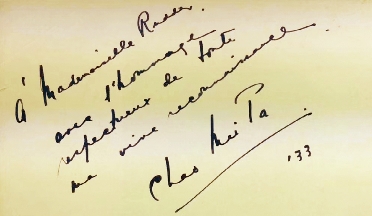 à Mademoiselle
avec l'hommage
respectueux de toute
ma vive reconnaissance.
Chao Mei Pa.
'33